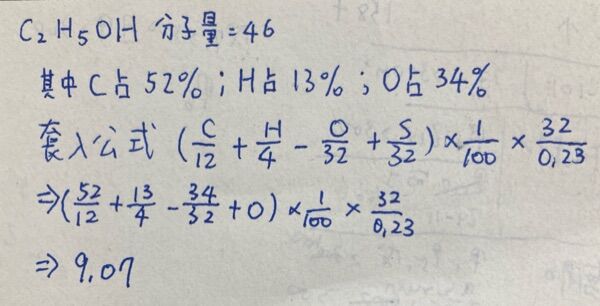 C₂H₅OH 分子量=46
其中C占52%；H占13%；O占34%
套入公式 (C/12 + H/4 - O/32 + S/32) × 1/100 × 32/0,23
⇒(52/12 + 13/4 - 34/32 + 0) × 1/100 × 32/0,23
⇒ 9,07